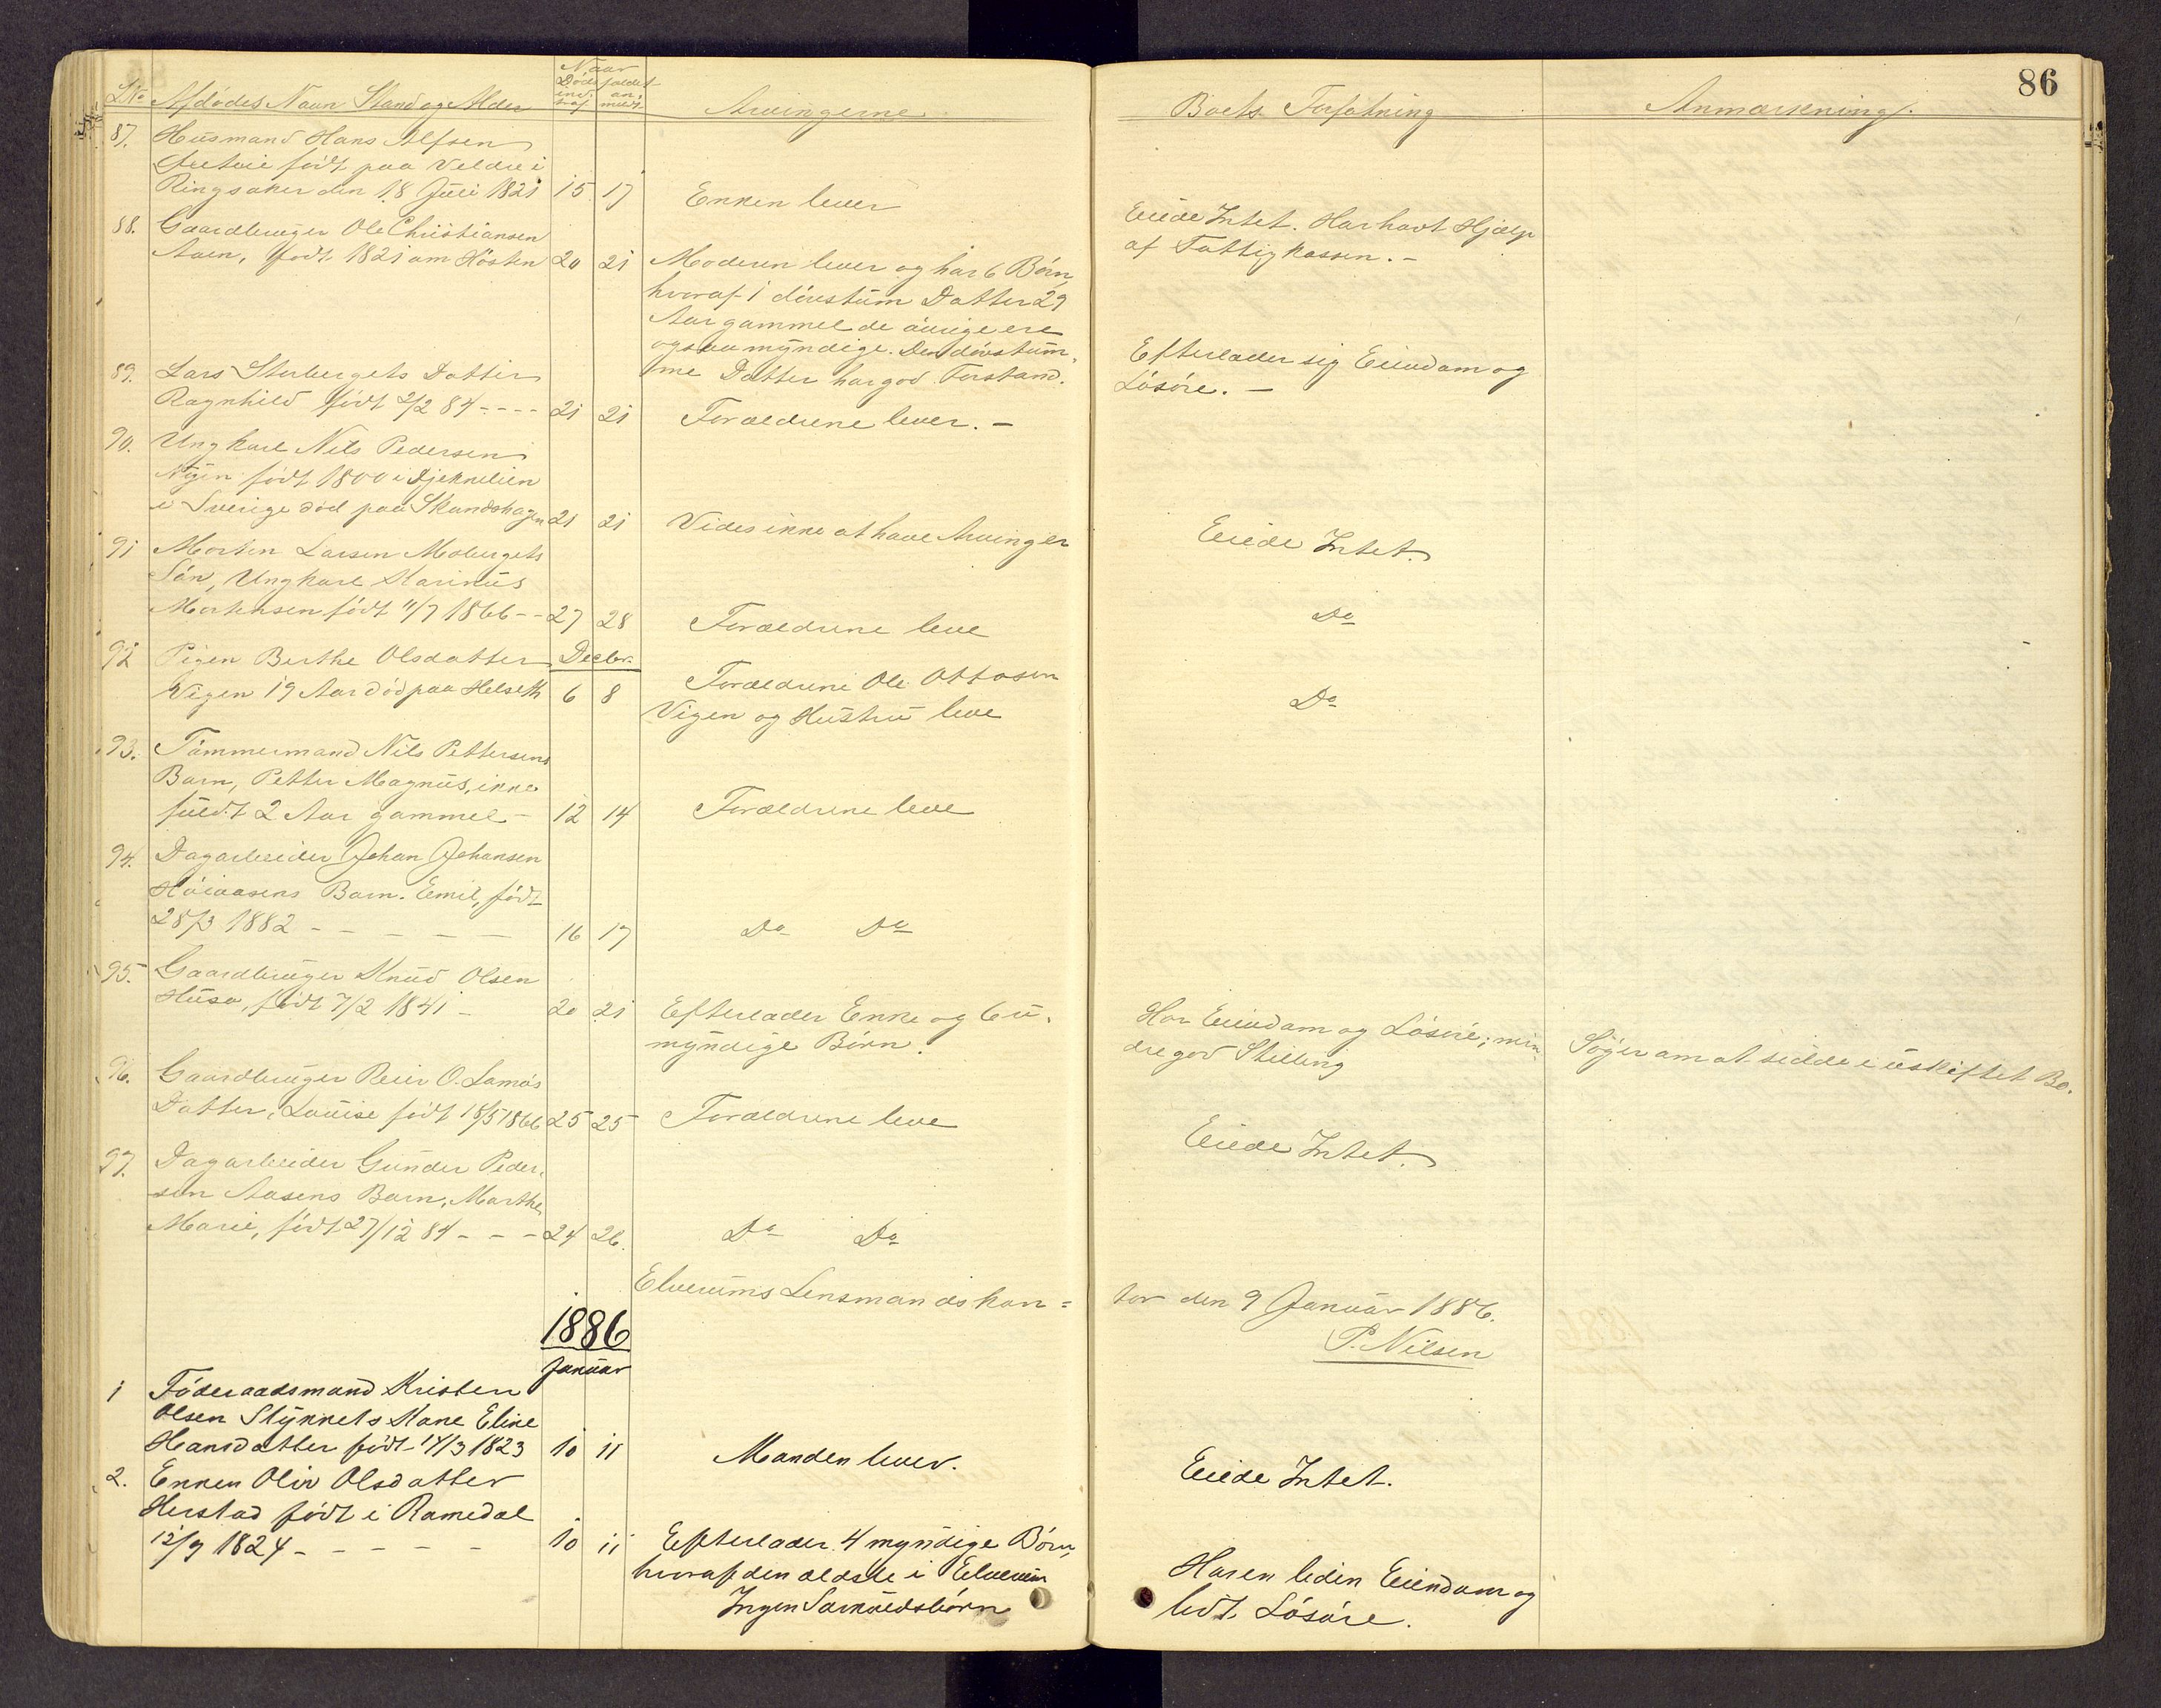 86
LNo Afdødes Navn Stand og Alder
Naar Dødsfaldet
indtraf
anmeldt
Arvingerne
Boets Forfatning
Anmærkning
87. Husmand Hans Alfsen
født paa Veldre i
Ringsaker den 18 Juli 1821 15 17 Enken lever
Eiede Intet. Har havt Hjælp
af Fattigkassen. -
88. Gaardbruger Ole Christiansen
Aaen, født 1821 om Høsten 20 21 Moderen lever og har 6 Børn,
hvoraf 1 døvstum Datter 29
Aar gammel de øvrige ere
ogsaa myndige. Den døvstum-
me Datter har god Forstand.
Efterlader sig Eiendom og
Løsøre. -
89. Lars Storbergets Datter
Ragnhild født 2/2 84 - - - - 21 21 Forældrene lever. -
90. Ungkarl Nils Pedersen
født 1800 i
i Sverige død paa Skandshagen 21 21 Vides ikke at have Arvinger
Eiede Intet.
91 Morten Larsen Mobergets
Søn, Ungkarl Karinus
Mortensen født 11/7 1866 - - 27 28 Forældrene leve
Do
92 Pigen Berthe Olsdatter Decbr.
Vigen 19 Aar død paa Helseth 6 8 Forældrene Ole Ottosen
Vigen og Hustru leve
Do
93. Tømmermand Nils Pettersens
Barn, Petter Magnus, ikke
fuldt 2 Aar gammel - 12 14 Forældrene leve
94. Dagarbeider Johan Johansen
Høiaasens Barn. Emil, født
28/3 1882 - - - - - 16 17 Do Do
95. Gaardbruger Knud Olsen
Husa, født 7/2 1841 - 20 21 Efterlader Enke og 6 u-
myndige Børn.
Har Eiendom og Løsøre; min-
dre god Stilling
Søger om at sidde i uskiftet Bo.
96. Gaardbruger Peier O. Lamøs
Datter, Louise født 18/5 1866 25 25 Forældrene leve
Eiede Intet.
97. Dagarbeider Gunder Peder-
sen Aasens Barn, Marthe
Marie, født 27/12 84 - - - 24 26. Do Do
Elverums Lensmandskon=
tor den 9 Januar 1886.
P. Nilsen
1886
Januar
1 Føderaadsmand Kristen
Olsen Stykkets Kone Eline
Hansdatter født 14/3 1823 10 11 Manden lever.
Eiede Intet.
2. Enken Oliv Olsdatter
Herstad født i Romedal
12/9 1824 - - - - - 10 11 Efterlader 4 myndige Børn,
hvoraf den ældste i Elverum
Ingen Særkuldsbørn
Har en liden Eiendom og
lidt Løsøre.